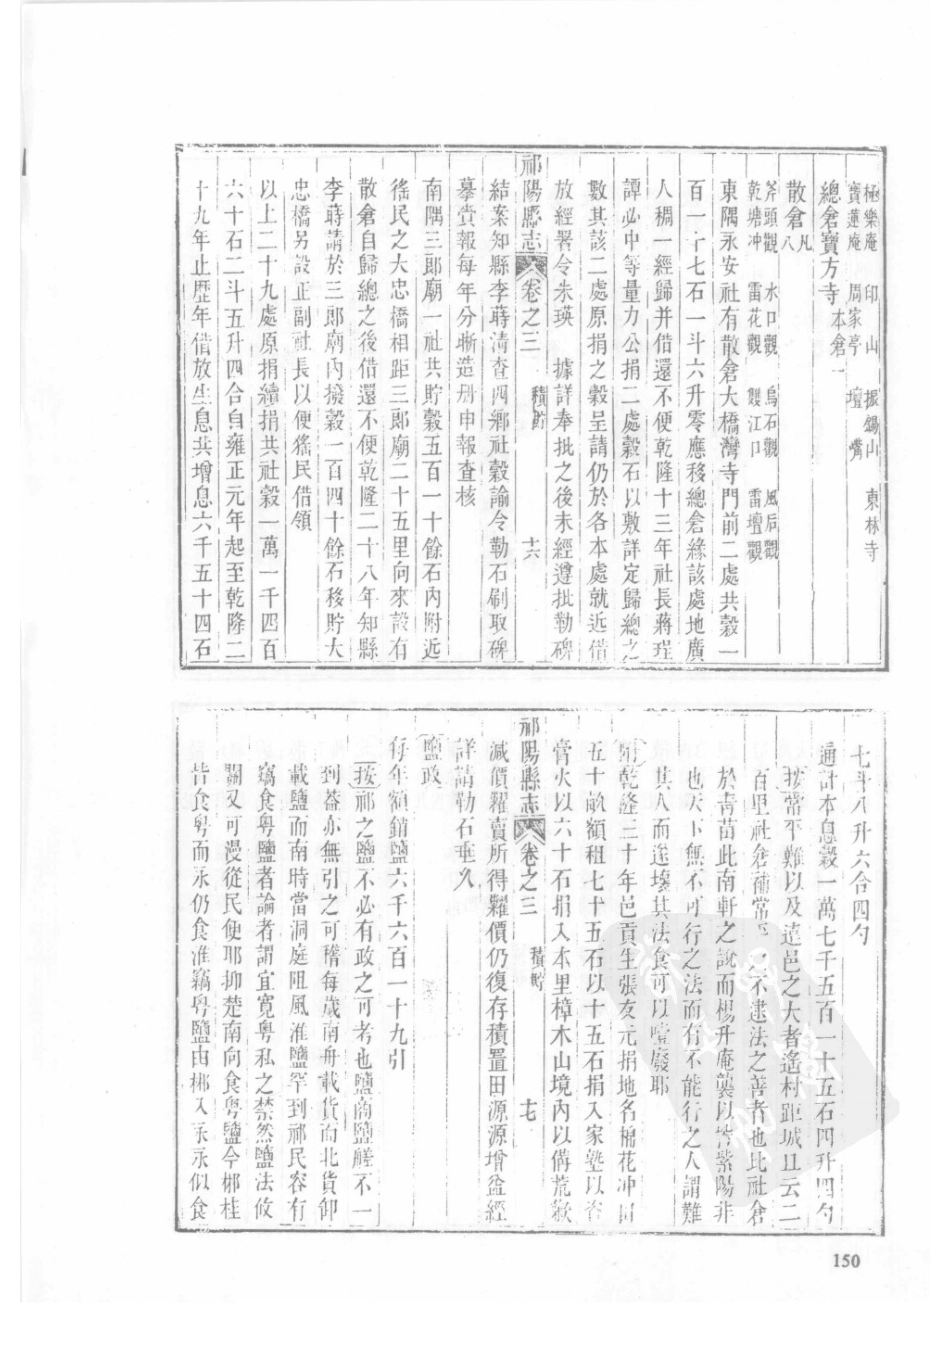 極樂庵　印山　振錫山　東林寺
寶蓮庵　周家亭　壇嘴
總倉寶方寺本倉一
散倉凡八
斧頭觀　水口觀　烏石觀　風后觀
乾塘冲　雷花觀　雙江口　雷壇觀
東隅永安社有散倉大橋灣寺門前二處共穀一
百一十七石一斗六升零應移總倉緣該處地廣
人稠一經歸并借還不便乾隆十三年社長蔣珵
譚必中等量力公捐二處穀石以敷詳定歸總之
數其該二處原捐之穀呈請仍於各本處就近借
放經署令朱瑛　據詳奉批之後未經遵批勒碑
祁陽縣志　卷之三　積貯　十六
結案知縣李蒔清查四鄉社穀諭令勒石刷取碑
摹賫報每年分晰造册申報查核
南隅三郎廟一社共貯穀五百一十餘石內附近
徭民之大忠橋相距三郎廟二十五里向來設有
散倉自歸總之後借還不便乾隆二十八年知縣
李蒔請於三郎廟內撥穀一百四十餘石移貯大
忠橋另設正副社長以便徭民借領
以上二十九處原捐續捐共社穀一萬一千四百
六十石二斗五升四合自雍正元年起至乾隆二
十九年止歷年借放生息共增息六千五十四石
七斗八升六合四勺
通計本息穀一萬七千五百一十五石四升四勺
按常平難以及遠邑之大者遙村距城且云二
百里社倉補常平之不逮法之善者也比社倉
於青苗此南軒之說而楊升庵襲以訾紫陽非
也天下無不可行之法而有不能行之人謂難
其人而遂壞其法食可以噎廢耶
附乾隆三十年邑貢生張友元捐地名棉花冲田
五十畝額租七十五石以十五石捐入家塾以資
膏火以六十石捐入本里樟木山境內以備荒歉
祁陽縣志　卷之三　積貯　十七
減價糶賣所得糶價仍復存積置田源源增益經
詳請勒石垂久
鹽政
每年額銷鹽六千六百一十九引
按祁之鹽不必有政之可考也鹽商鹽艖不一
到益亦無引之可稽每歲南舟載貨而北貨卸
載鹽而南時當洞庭阻風淮鹽罕到祁民容有
竊食粵鹽者論者謂宜寬粵私之禁然鹽法攸
關又可漫從民便耶抑楚南向食粵鹽今郴桂
皆食粵而永仍食淮竊粵鹽由郴入永永似食
150